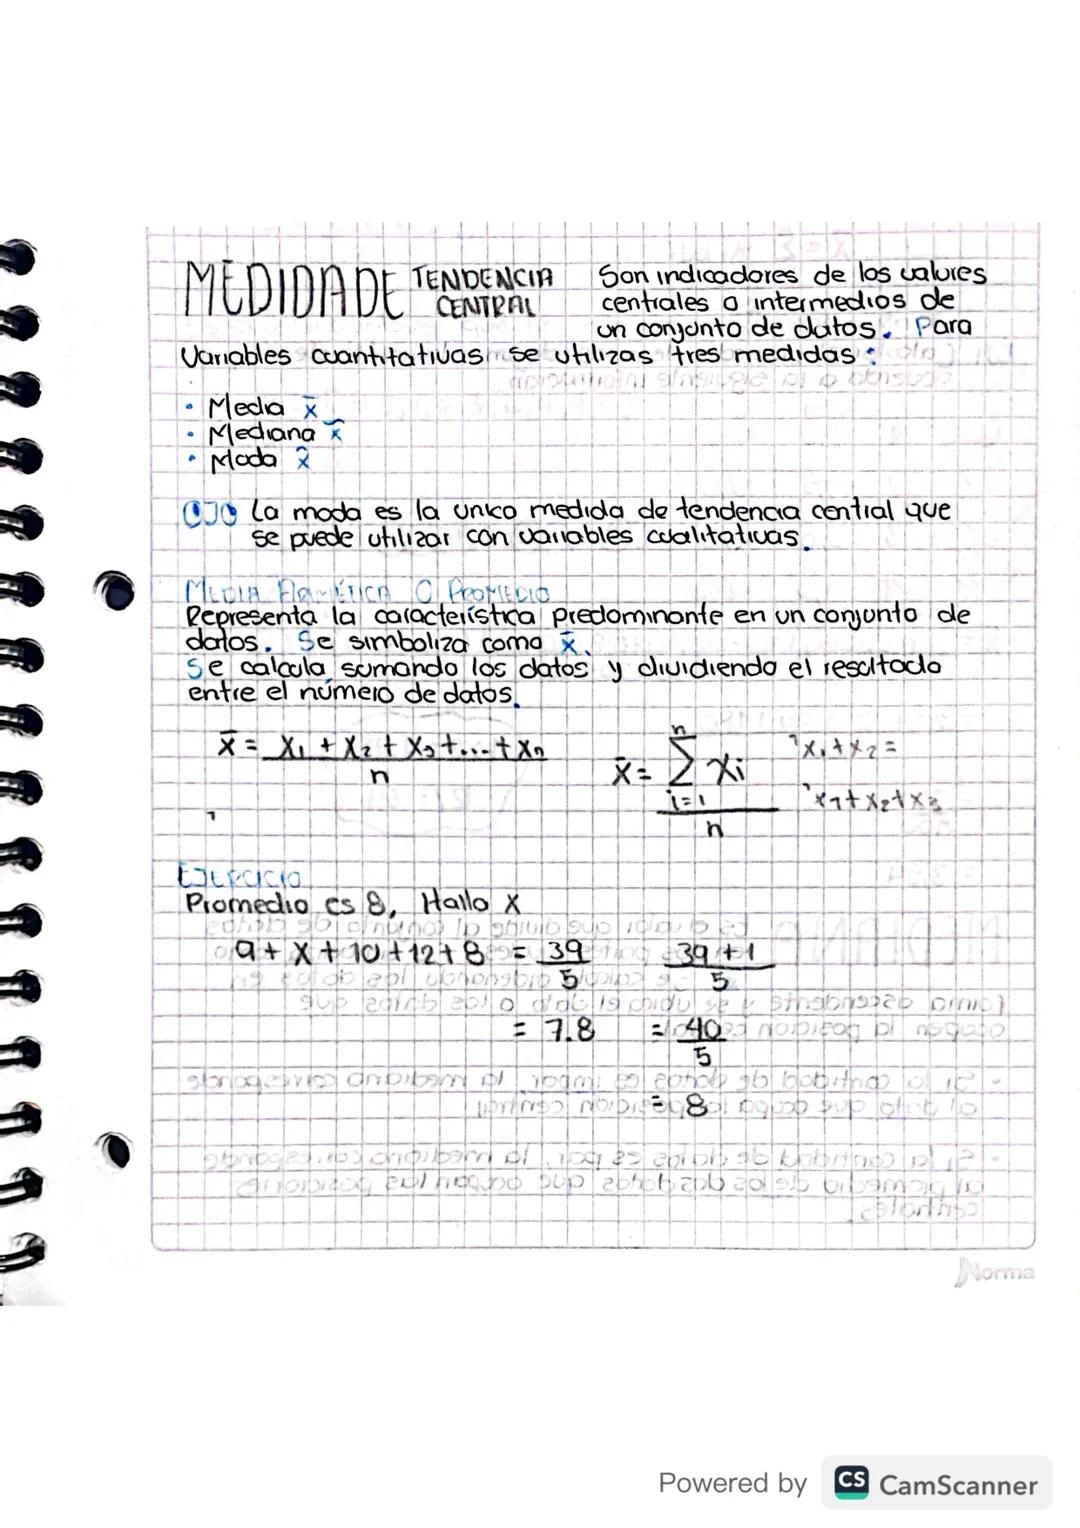 MEDIDA DE TENDENCIA CENTRAL
Son indicadores de los valores
centrales o intermedios de
un conjunto de datos. Para
Variables cuantitativas se utilizas tres medidas:
• Media x̄
• Mediana x̃
• Moda x̂
OJO La moda es la unico medida de tendencia central que
se puede utilizar con variables cualitativas.
MEDIA ARMÉTICA O PROMEDIO
Representa la característica predominante en un conjunto de
datos. Se simboliza como x̄.
Se calcula sumando los datos y dividiendo el resultado
entre el número de datos.
x̄ = x₁ + x₂ + x₃ +...+ xn
n
n
x̄ = ∑ xi
i=1
n
x₁ + x₂ =
x₁ + x₂ + x₃
EJERCICIO
Promedio es 8, Halla x
9 + x + 10 + 12 + 8 = 39
5
= 7.8
39 + 1
5
= 40
5
= 8
Norma
Powered by CS CamScanner